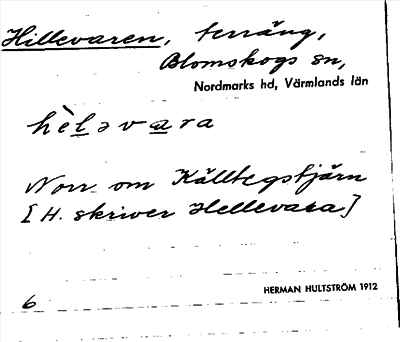 Hillevaren, terräng,
Blomskogs sn,
Nordmarks hd, Värmlands län
hèləvara
Norr om Källtegstjärn
[H. skriver Hellevara]
HERMAN HULTSTRÖM 1912
6